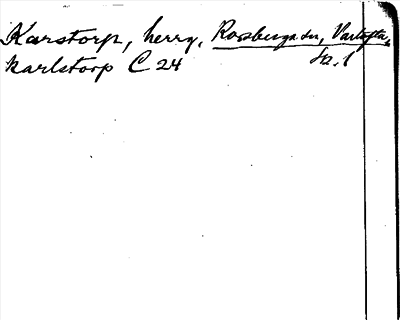 Karstorp, herrg. Rossberga sn, Vartofta,
Karlstorp C 24 Sk. l